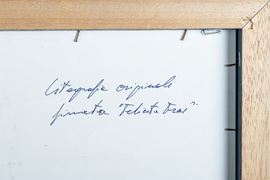 Litografia originale
firmata "Felicita Frai".